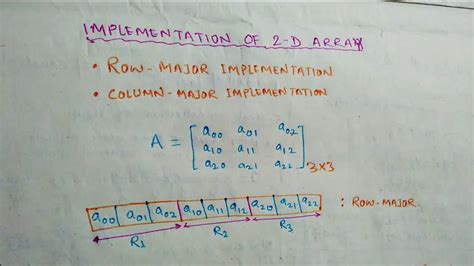 IMPLEMENTATION OF 2-D ARRAY
• ROW-MAJOR IMPLEMENTATION
• COLUMN-MAJOR IMPLEMENTATION
a00 a01 a02
A = a10 a11 a12
a20 a21 a22 3×3
a00 a01 a02 a10 a11 a12 a20 a21 a22 : ROW-MAJOR
R1 R2 R3